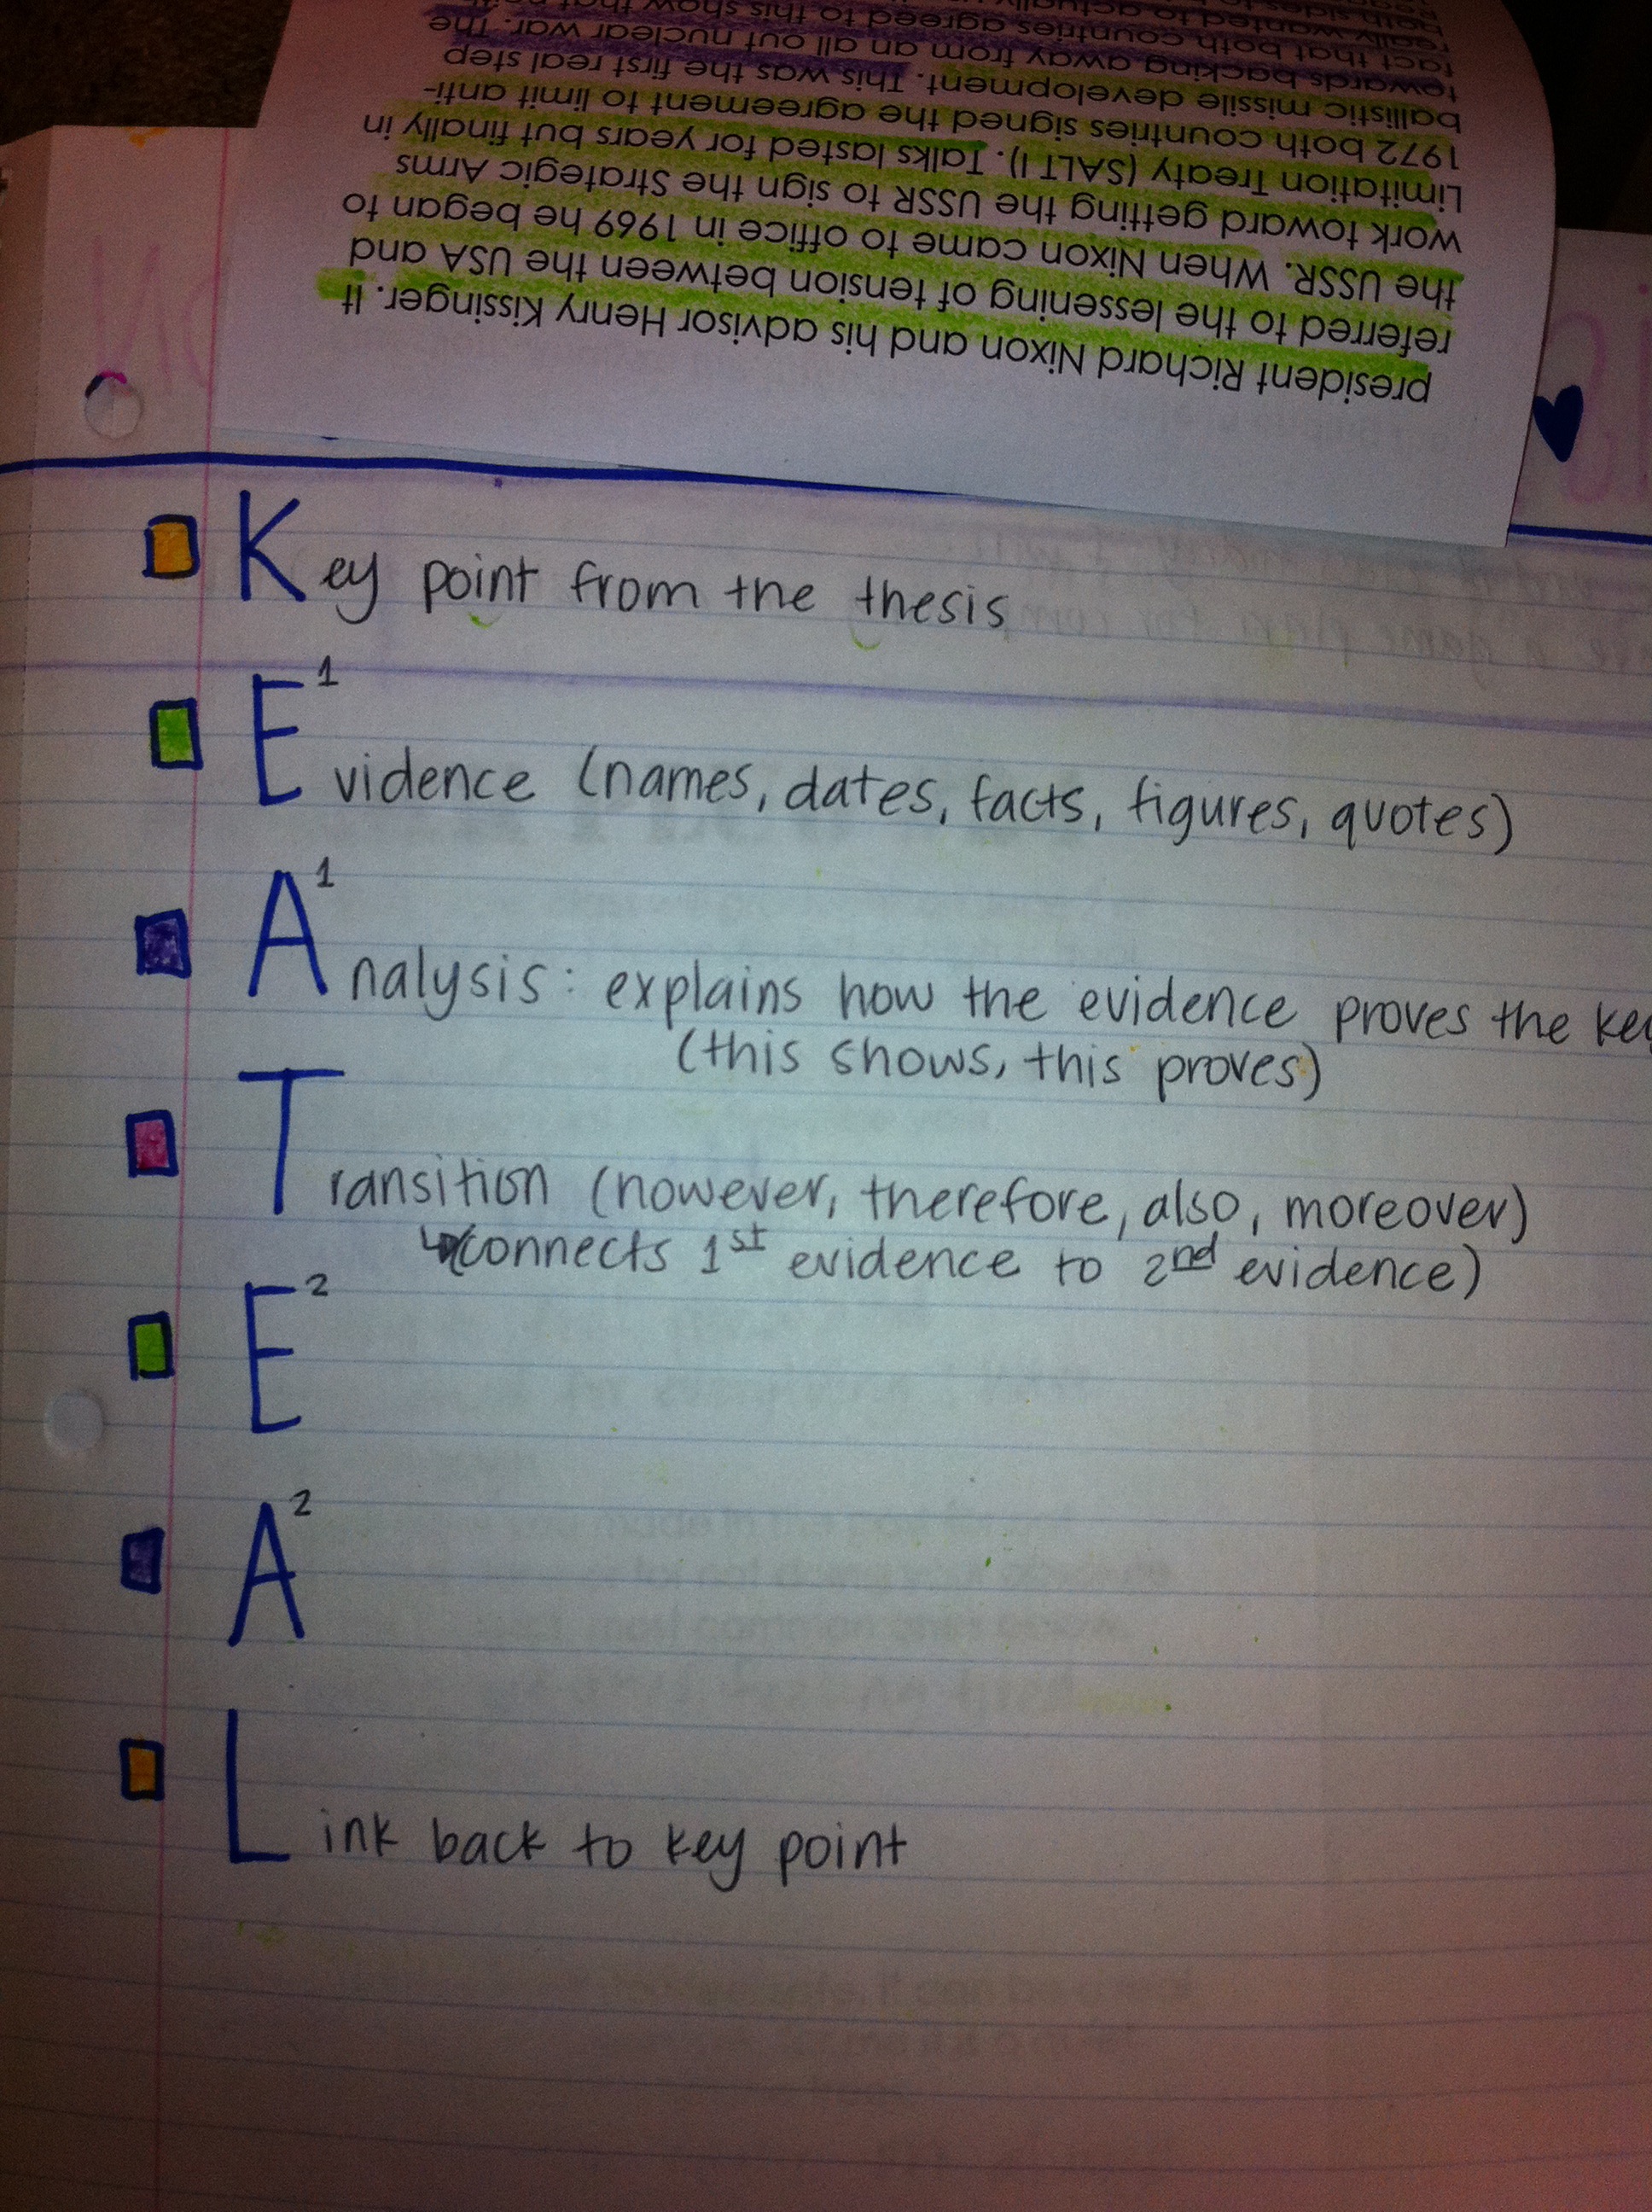 president Richard Nixon and his advisor Henry Kissinger. It
referred to the lessening of tension between the USA and
the USSR. When Nixon came to office in 1969 he began to
work toward getting the USSR to sign the Strategic Arms
Limitation Treaty (SALT I). Talks lasted for years but finally in
1972 both countries signed the agreement to limit anti-
ballistic missile development. This was the first real step
towards backing away from an all out nuclear war. The
fact that both countries agreed to this show that
really wanted to
Key point from the thesis
E1vidence (names, dates, facts, figures, quotes)
A1nalysis: explains how the evidence proves the
(this shows, this proves)
Transition (however, therefore, also, moreover)
(connects 1st evidence to 2nd evidence)
E2
A2
Link back to key point